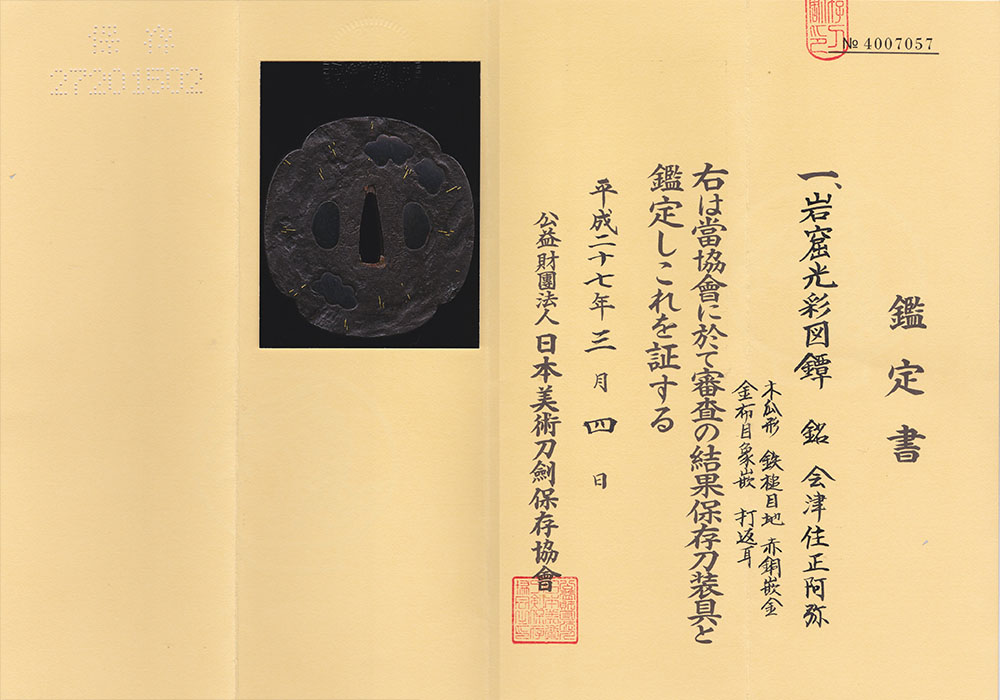 № 4007057
鑑定書
一、岩窟光彩図鐔 銘 会津住正阿弥
木瓜形 鉄槌目地 赤銅嵌金
金布目象嵌 打返耳
右は當協會に於て審査の結果保存刀装具と
鑑定しこれを証する
平成二十七年三月四日
公益財團法人 日本美術刀劍保存協會
保存
27201502